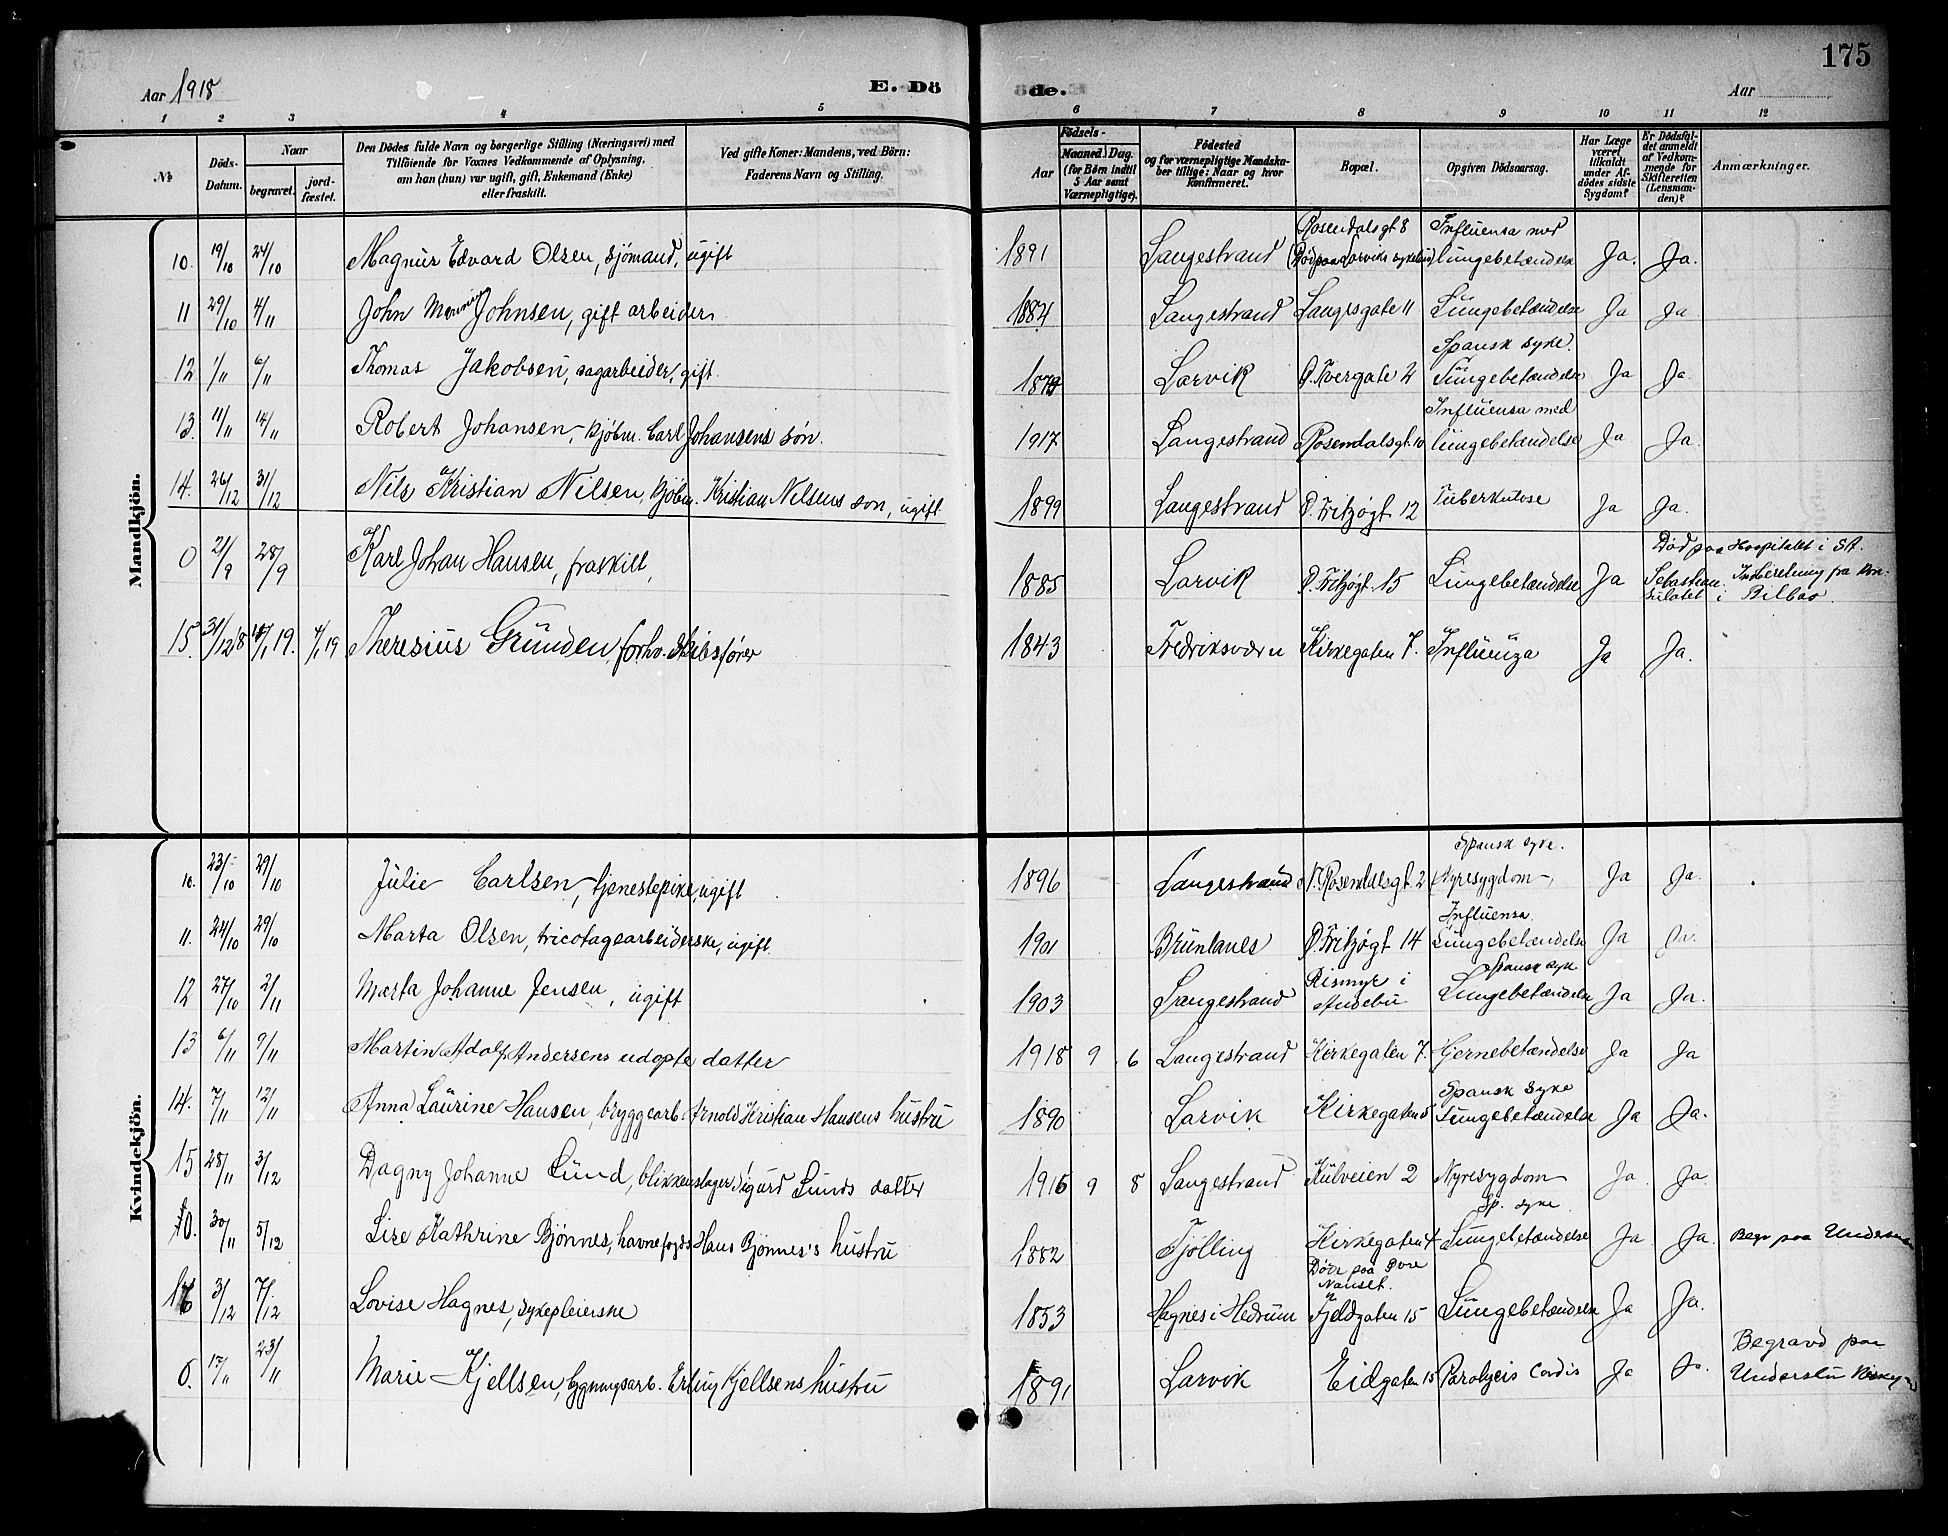 175
Aar 1918
E. Dö
de.
Aar
1 2 3 4 5 6 7 8 9 10 11 12
№
Döds-Datum.
Naar
begravet.
jord-fæstet.
Den Dödes fulde Navn og borgerlige Stilling (Næringsvei) med
Tilföiende for Voxnes Vedkommende af Oplysning,
om han (hun) var ugift, gift, Enkemand (Enke)
eller fraskilt.
Ved gifte Koner: Mandens, ved Börn:
Faderens Navn og Stilling.
Födsels-
Aar
Maaned. Dag.
(for Börn indtil
5 Aar samt
Værnepligtige).
Födested
og for værnepligtige Mandska-
ber tillige: Naar og hvor
Konfirmeret.
Bopæl.
Opgiven Dödsaarsag.
Har Læge
været
tilkaldt
under Af-
dödes sidste
Sygdom?
Er Dödsfal-
det anmeldt
af Vedkom-
mende for
Skifteretten
(Lensman-
den)?
Anmærkninger.
Mandkjön.
10. 19/10 24/10 Magnus Edvard Olsen, sjömand, ugift 1891 Langestrand Rosendalsgt 8 (Död paa Larviks sykehus) Influensa med lungebetændelse Ja. Ja.
11 29/10 4/11 John Johnsen, gift arbeider 1884 Langestrand Langesgate 11 Lungebetændelse Ja Ja
12 1/11 6/11 Thomas Jakobsen, sagarbeider, gift. Larvik Ö. Tvergate 2 Spansk syke. Lungebetændelse Ja Ja.
13. 11/11 14/11 Robert Johansen, kjöbm. Carl Johansens sön. 1917 Langestrand Rosendalsgt. 10 Influensa med lungebetændelse Ja Ja.
14. 26/12 31/12 Nils Kristian Nilsen, kjöbm. Kristian Nilsens son, ugift 1899 Langestrand Ö. Fritzøgt 12 Tuberkulose Ja Ja.
0 21/9 28/9 Karl Johan Hansen, fraskilt, 1885 Larvik Ö. Fritzøgt. 15 Lungebetændelse Ja Död paa Hospitalet i St. Sebastian. Indberetning fra Konsulatet i Bilbao.
15. 31/12 18 19. 4/1 19 Theresius Grunden, forhv. Skibsfører 1843 Fredriksværn Kirkegaten 7. Influenza Ja Ja.
Kvindekjön.
10. 23/10 29/10 Julie Carlsen, tjenestepike, ugift 1896 Langestrand N. Rosendalsgt. 2 Spansk syke. Nyresygdom Ja Ja.
11. 24/10 29/10 Marta Olsen, tricotagearbeiderske, ugift. 1901 Brunlanes Ö. Fritzøgt 14 Influensa. Lungebetændelse Ja Ja.
12 27/10 2/11 Marta Johanne Jensen, ugift 1903 Langestrand Rismyr i Andebu Spansk syk Lungebetændelse Ja Ja.
13 6/11 9/11 Martin Adolf Andersens udøpte datter 1918 9 6 Langestrand Kirkegaten 7. Hjernebetændelse Ja Ja
14. 7/11 12/11 Anna Laurine Hansen, bryggearb. Arnold Kristian Hansens hustru 1890 Larvik Kirkegaten 5 Spansk Syke Lungebetændelse Ja Ja.
15 28/11 3/12 Dagny Johanne Lund, blikkenslager Sigurd Lunds datter 1916 9 8 Langestrand Kulveien 2 Nyresygdom Ja Ja.
0. 30/11 5/12 Lise Kathrine Bjønnes, havnefogd Hans Bjønnes's hustru 1882 Tjølling Kirkegaten 4 Döde paa Övre Nanset. Sp. syke Lungebetændelse Ja Ja. Begr. paa
16 3/12 7/12 Lovise Hagnes, sykepleierske 1853 Hagnes i Hedrum Fjeldgaten 15 Lungebetændelse Ja Ja.
0. 17/11 23/11 Marie Kjellsen, bygningsarb. Erling Kjellsens hustru 1891 Larvik Eidgaten 15 Paralysis Cordis Ja Ja. Begravd paa